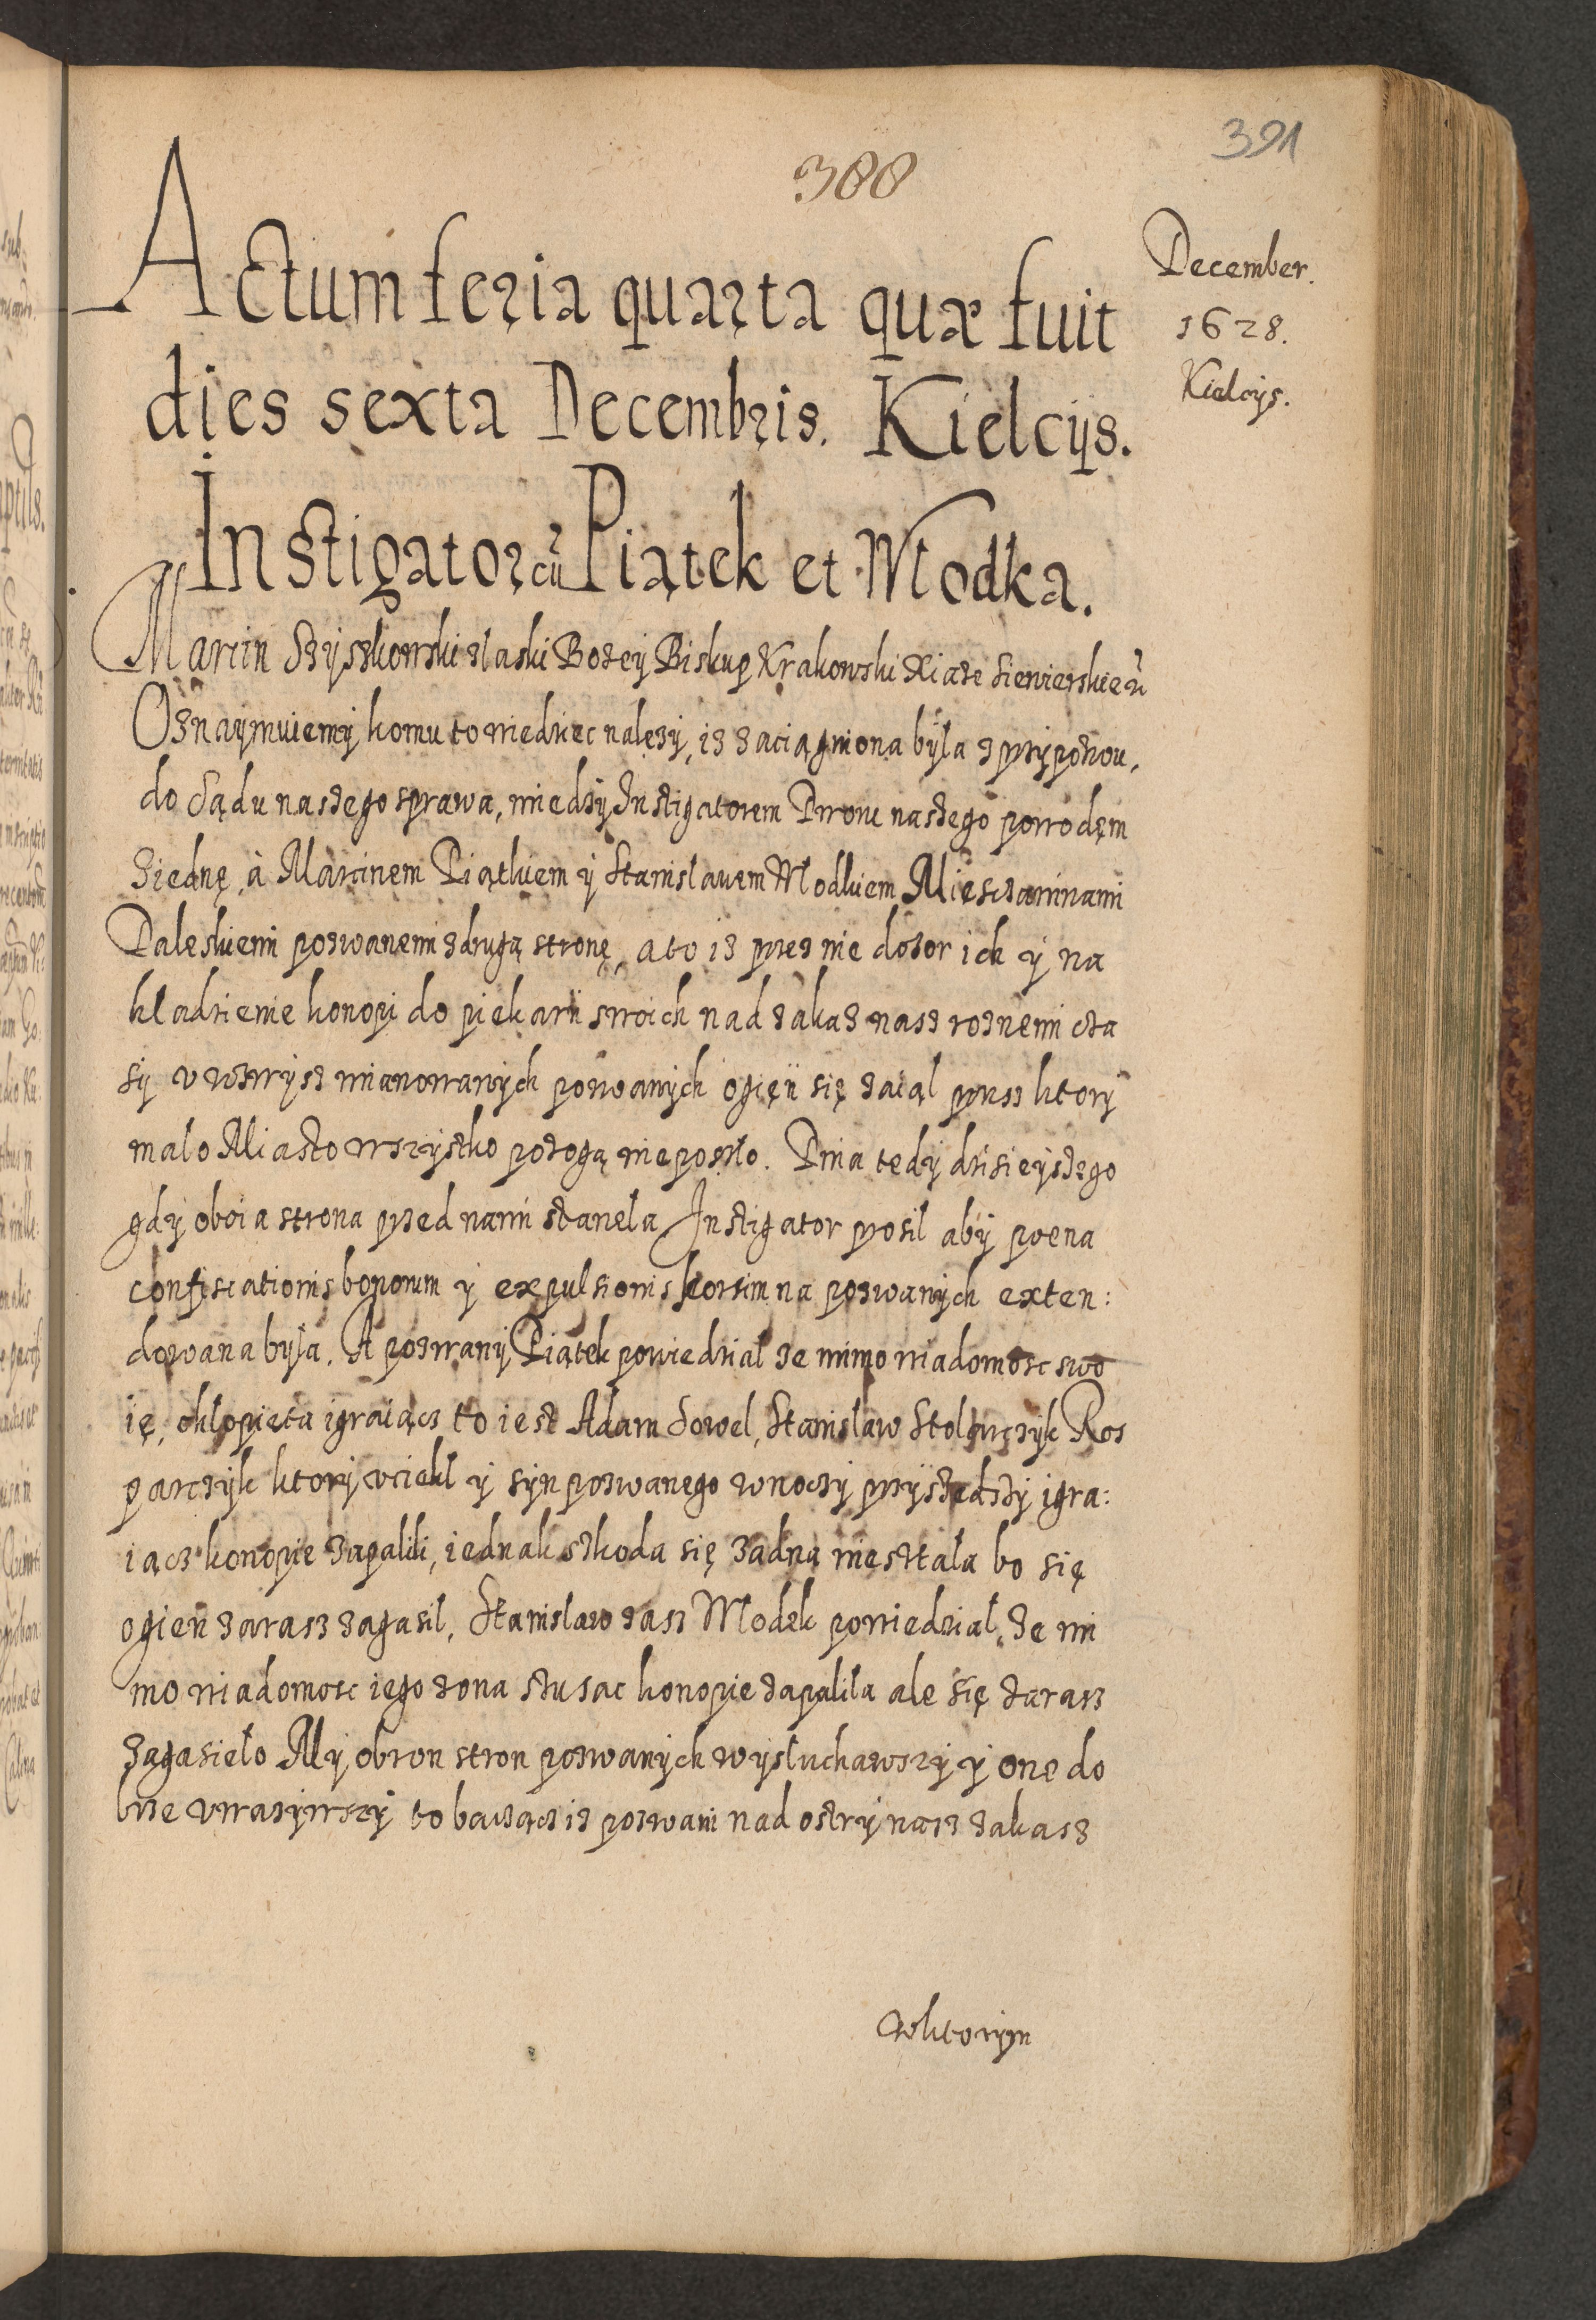 391
388
December.
1628.
Kielcijs.
Actum feria quarta quæ fuit
dies sexta Decembris. Kielcijs.
Instigator cũ Piątek et Młodka.
Marcin Szyszkowski z łaski Bozey Biskup Krakowski Xiaze Siewierskie
Oznaymuiemy komu to wiedziec nalęzy, iz zaciągniona była z przypozwu,
do Sądu naszego sprawa, miedzy Instigatorem Dworu naszego powodęm
z iednę, à Marcinem Piątkiem y Stanisławem Młodkiem Miesczaninami
Daleskiemi pozwanemi z drugą stronę, a to iz przez nie dozor ich y na
kładzienie konopi do piekarń swoich nad zakaz nasz roznemi cza
sy v wzwysz mianowanych pozwanych ogięń się zaiął przesz ktory
mało Miasto wszystko pozogą nie poszło. Dnia tedy dzisieyszego
gdy oboia strona przed nami stanęła Instigator prosił aby pœna
confiscationis bonorum y expulsionis eorum na pozwanych exten:
dowana była. A pozwany Piątek powiedział ze mimo wiadomosc swo
ię, chłopięta igraiącz to iest Adam Sowel, Stanisław Stolarczyk Ros
parczyk ktory vciekł y syn pozwanego w noczy przyszedszy igra:
iącz konopie zapalili, iednak szkoda się zadna nie ształa bo się
ogień zarasz zagasił, Stanisław zasz Młodek powiedział, ze mi
mo wiadomosc iego zona szusac konopie zapaliła ale się zarasz
zagasieło My obron stron pozwanych wysłuchawszy y one do
brze vwazywszy to baczącz iz pozwani nad ostry nasz zakasz
w ktorym